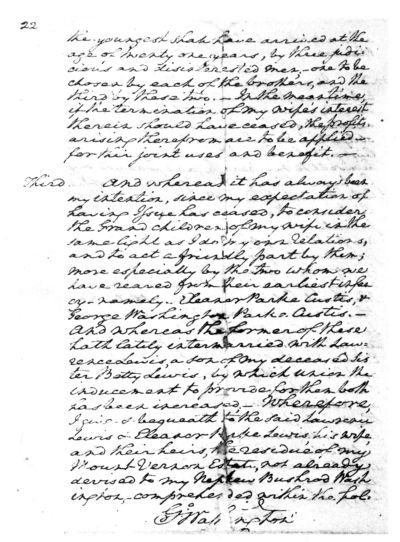 22
the youngest shall have arrived at the
age of twenty one years, by three judi
cious and disinterested men,—one to be
chosen by each of the brothers, and the
third by these two.— In the meantime,
if the termination of my wife's interest
therein should have ceased, the profits
arising therefrom are to be applied
for their joint uses and benefit.—
Third And whereas it has always been
my intention, since my expectation of
having Issue has ceased, to consider
the Grand children of my wife in the
same light as I do my own relations,
and to act a friendly part by them;
more especially by the two whom we
have reared from their earliest infan
cy—namely—Eleanor Parke Custis, &
George Washington Parke Custis.—
And whereas the former of these
hath lately intermarried with Law-
rence Lewis, a son of my deceased Sis
ter Betty Lewis, by which union the
inducement to provide for them both
has been increased—Wherefore,
I give & bequeath to the said Lawrence
Lewis & Eleanor Parke Lewis, his wife
and their heirs, the residue of my
Mount Vernon Estate, not already
devised to my Nephew Bushrod Wash
ington,—comprehended within the fol-
Go Washington